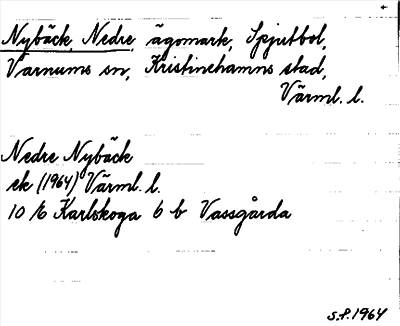 Nybäck, Nedre, ägomark, Spjutbol,
Varnums sn, Kristinehamns stad,
Värml. l.
Nedre Nybäck
ek (1964) Värml. l.
10 E Karlskoga 6 b Vassgårda
S.P. 1964